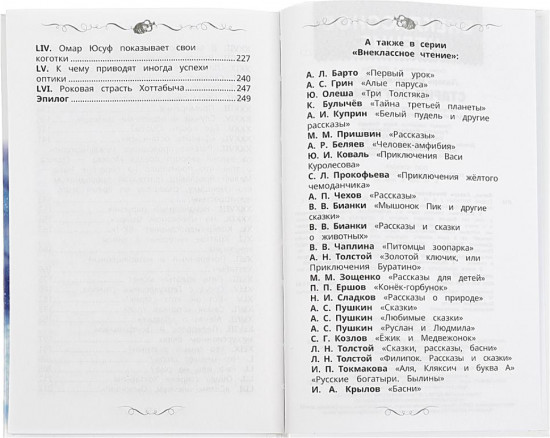 LIV. Омар Юсуф показывает свои
коготки 227
LV. К чему приводят иногда успехи
оптики 240
LVI. Роковая страсть Хоттабыча 247
Эпилог 249
А также в серии
«Внеклассное чтение»:
А. Л. Барто «Первый урок»
А. С. Грин «Алые паруса»
Ю. Олеша «Три Толстяка»
К. Булычёв «Тайна третьей планеты»
А. И. Куприн «Белый пудель и другие
рассказы»
М. М. Пришвин «Рассказы»
А. Р. Беляев «Человек-амфибия»
Ю. И. Коваль «Приключения Васи
Куролесова»
С. Л. Прокофьева «Приключения жёлтого
чемоданчика»
А. П. Чехов «Рассказы»
В. В. Бианки «Мышонок Пик и другие
сказки»
В. В. Бианки «Рассказы и сказки
о животных»
В. В. Чаплина «Питомцы зоопарка»
А. Н. Толстой «Золотой ключик, или
Приключения Буратино»
М. М. Зощенко «Рассказы для детей»
П. П. Ершов «Конёк-горбунок»
Н. И. Сладков «Рассказы о природе»
А. С. Пушкин «Сказки»
А. С. Пушкин «Любимые сказки»
А. С. Пушкин «Руслан и Людмила»
С. Г. Козлов «Ёжик и Медвежонок»
Л. Н. Толстой «Сказки, рассказы, басни»
Л. Н. Толстой «Филипок. Рассказы и сказки»
И. П. Токмакова «Аля, Кляксич и буква А»
«Русские богатыри. Былины»
И. А. Крылов «Басни»